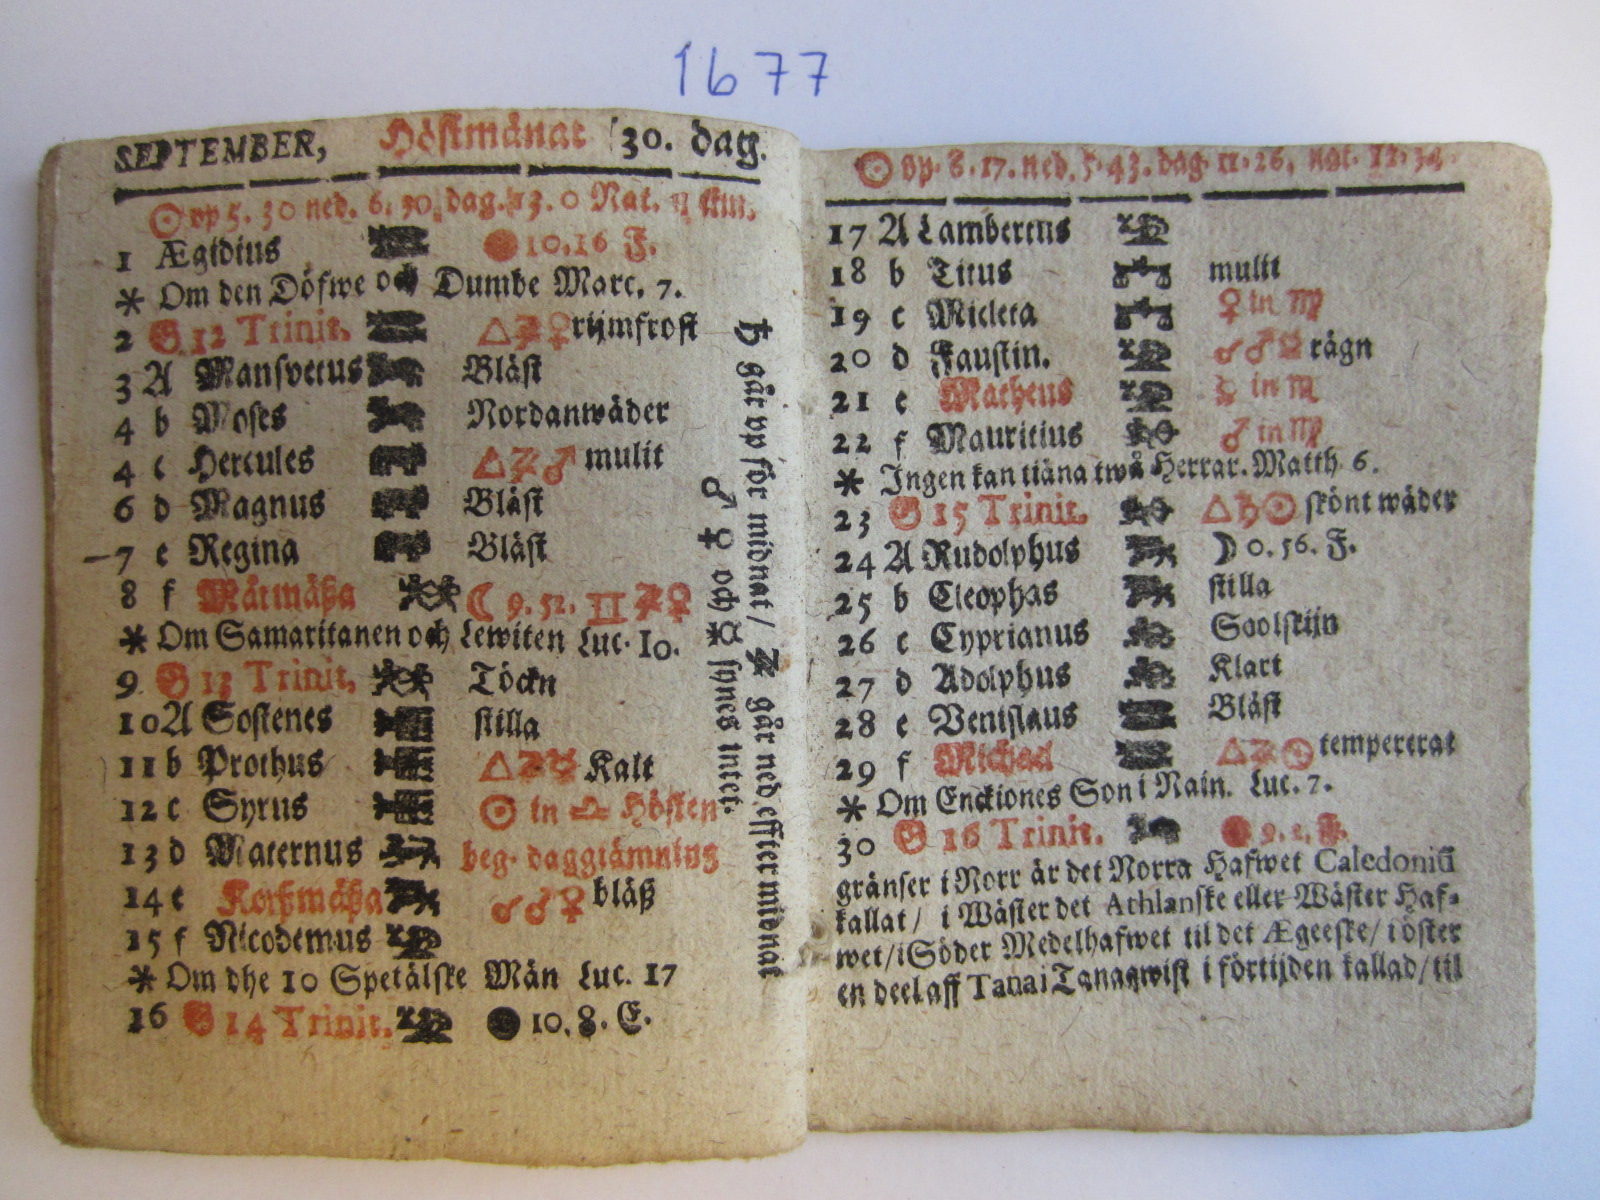 1677
SEPTEMBER, Höstmånat 30. dag.
☉ vp 5. 30 ned. 6. 30. dag. 13. 0 Nat. 11
1 Ægidius 10.16 F.
* Om den Döfwe och Dumbe Marc. 7.
2 G 12 Trinit. △♃♀ rijmfrost
3 A Mansvetus Bläst
4 b Moses Nordanwäder
4 c Hercules △♃♂ mulit
6 d Magnus Bläst
7 e Regina Bläst
8 f Märmäßa ☾ 9. 52. II ♃♀
* Om Samaritanen och Lewiten Luc. 10.
9 G 13 Trinit. Töckn
10 A Sostenes stilla
11 b Prothus △♃☿ Kalt
12 c Syrus ☉ in ♎ Hösten
13 d Maternus beg. daggiämning
14 e Korßmäßa ☌♂♀ bläß
15 f Nicodemus
* Om dhe 10 Spetälske Män Luc. 17
16 G 14 Trinit. ● 10. 8. E.
♄ går vp för midnat / ♃ går ned effter midnat
♂ ♀ och ☿ synes intet.
☉ vp. 8. 17. ned. 5. 43. dag 11. 26. nat. 12. 34.
17 A Lambertus
18 b Titus mulit
19 c Micleta ♀ in ♍
20 d Faustin. ☌♂☿ rägn
21 e Matheus ☿ in ♏
22 f Mauritius ♂ in ♍
* Ingen kan tiäna twå Herrar. Matth 6.
23 G 15 Trinit. △♄☉ skönt wäder
24 A Rudolphus ☽ 0. 56. F.
25 b Cleophas stilla
26 c Cyprianus Soolskijn
27 d Adolphus Klart
28 e Venislaus Bläst
29 f Michael △♃☉ tempererat
* Om Enckiones Son i Nain. Luc. 7.
30 G 16 Trinit. 9. 2. F.
gränser i Norr är det Norra Hafwet Caledoniū
kallat / i Wäster det Athlanske eller Wäster Haf-
wet / i Söder Medelhafwet til det Ægeeske / i öster
en deel aff Tanai Tanaqwist i förtijden kallad / til